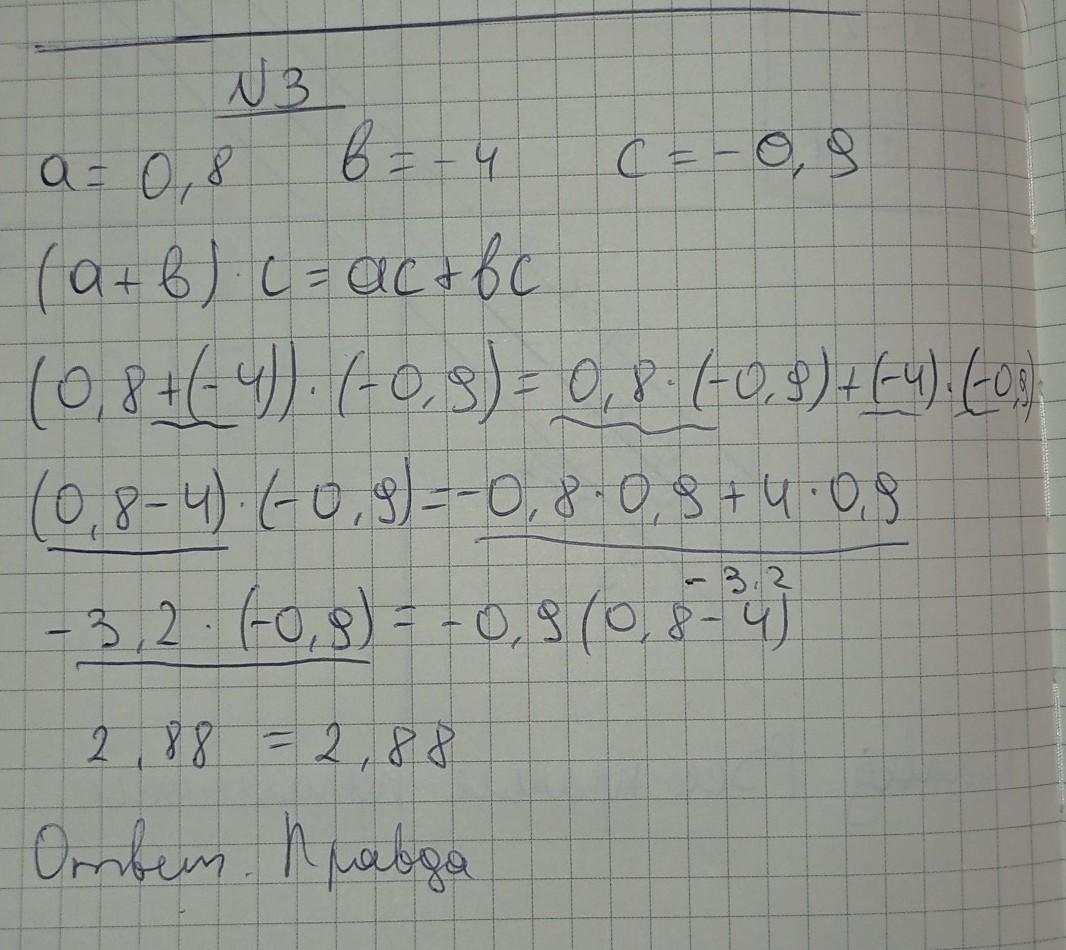 N3
a = 0,8 в = -4 c = -0,9
(a+в)·c = ac+вc
(0,8+(-4))·(-0,9) = 0,8·(-0,9)+(-4)·(-0,9)
(0,8-4)·(-0,9) = -0,8·0,9+4·0,9
-3,2
-3,2·(-0,9) = -0,9(0,8-4)
2,88 = 2,88
Ответ. Правда